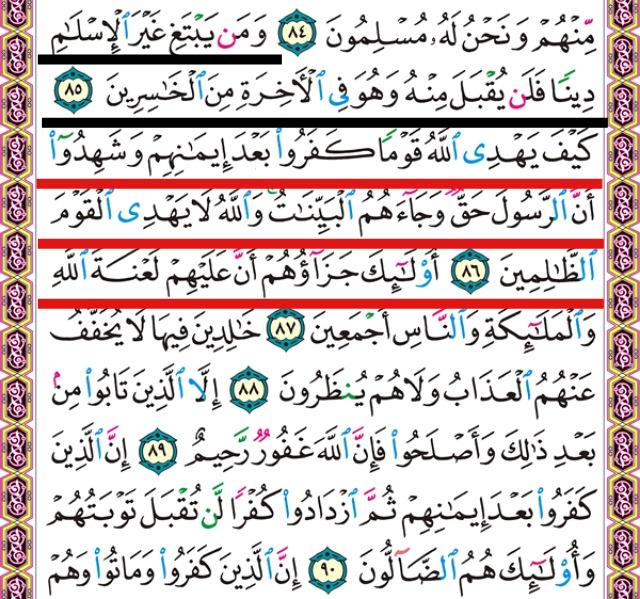 مِّنْهُمْ وَنَحْنُ لَهُۥ مُسْلِمُونَ ٨٤ وَمَن يَبْتَغِ غَيْرَ ٱلْإِسْلَٰمِ
دِينًا فَلَن يُقْبَلَ مِنْهُ وَهُوَ فِى ٱلْءَاخِرَةِ مِنَ ٱلْخَٰسِرِينَ ٨٥
كَيْفَ يَهْدِى ٱللَّهُ قَوْمًا كَفَرُوا۟ بَعْدَ إِيمَٰنِهِمْ وَشَهِدُوٓا۟
أَنَّ ٱلرَّسُولَ حَقٌّ وَجَآءَهُمُ ٱلْبَيِّنَٰتُ وَٱللَّهُ لَا يَهْدِى ٱلْقَوْمَ
ٱلظَّٰلِمِينَ ٨٦ أُو۟لَٰٓئِكَ جَزَآؤُهُمْ أَنَّ عَلَيْهِمْ لَعْنَةَ ٱللَّهِ
وَٱلْمَلَٰٓئِكَةِ وَٱلنَّاسِ أَجْمَعِينَ ٨٧ خَٰلِدِينَ فِيهَا لَا يُخَفَّفُ
عَنْهُمُ ٱلْعَذَابُ وَلَا هُمْ يُنظَرُونَ ٨٨ إِلَّا ٱلَّذِينَ تَابُوا۟ مِنۢ
بَعْدِ ذَٰلِكَ وَأَصْلَحُوا۟ فَإِنَّ ٱللَّهَ غَفُورٌ رَّحِيمٌ ٨٩ إِنَّ ٱلَّذِينَ
كَفَرُوا۟ بَعْدَ إِيمَٰنِهِمْ ثُمَّ ٱزْدَادُوا۟ كُفْرًا لَّن تُقْبَلَ تَوْبَتُهُمْ
وَأُو۟لَٰٓئِكَ هُمُ ٱلضَّآلُّونَ ٩٠ إِنَّ ٱلَّذِينَ كَفَرُوا۟ وَمَاتُوا۟ وَهُمْ